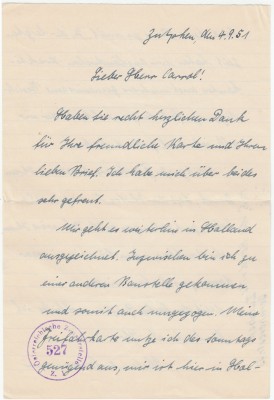 Zutphen, den 4.9.51
Lieber Herr Carrol!
Haben Sie recht herzlichen Dank
für Ihre freundliche Karte und Ihren
lieben Brief. Ich habe mich über beides
sehr gefreut.
Mir geht es weiterhin in Holland
ausgezeichnet. Inzwischen bin ich zu
einer anderen Baustelle gekommen
und somit auch umgezogen. Meine
Freifahrkarte nutze ich des Sonntags
genügend aus, mir ist hier in Hol-
Österreichische Zensurstelle
527